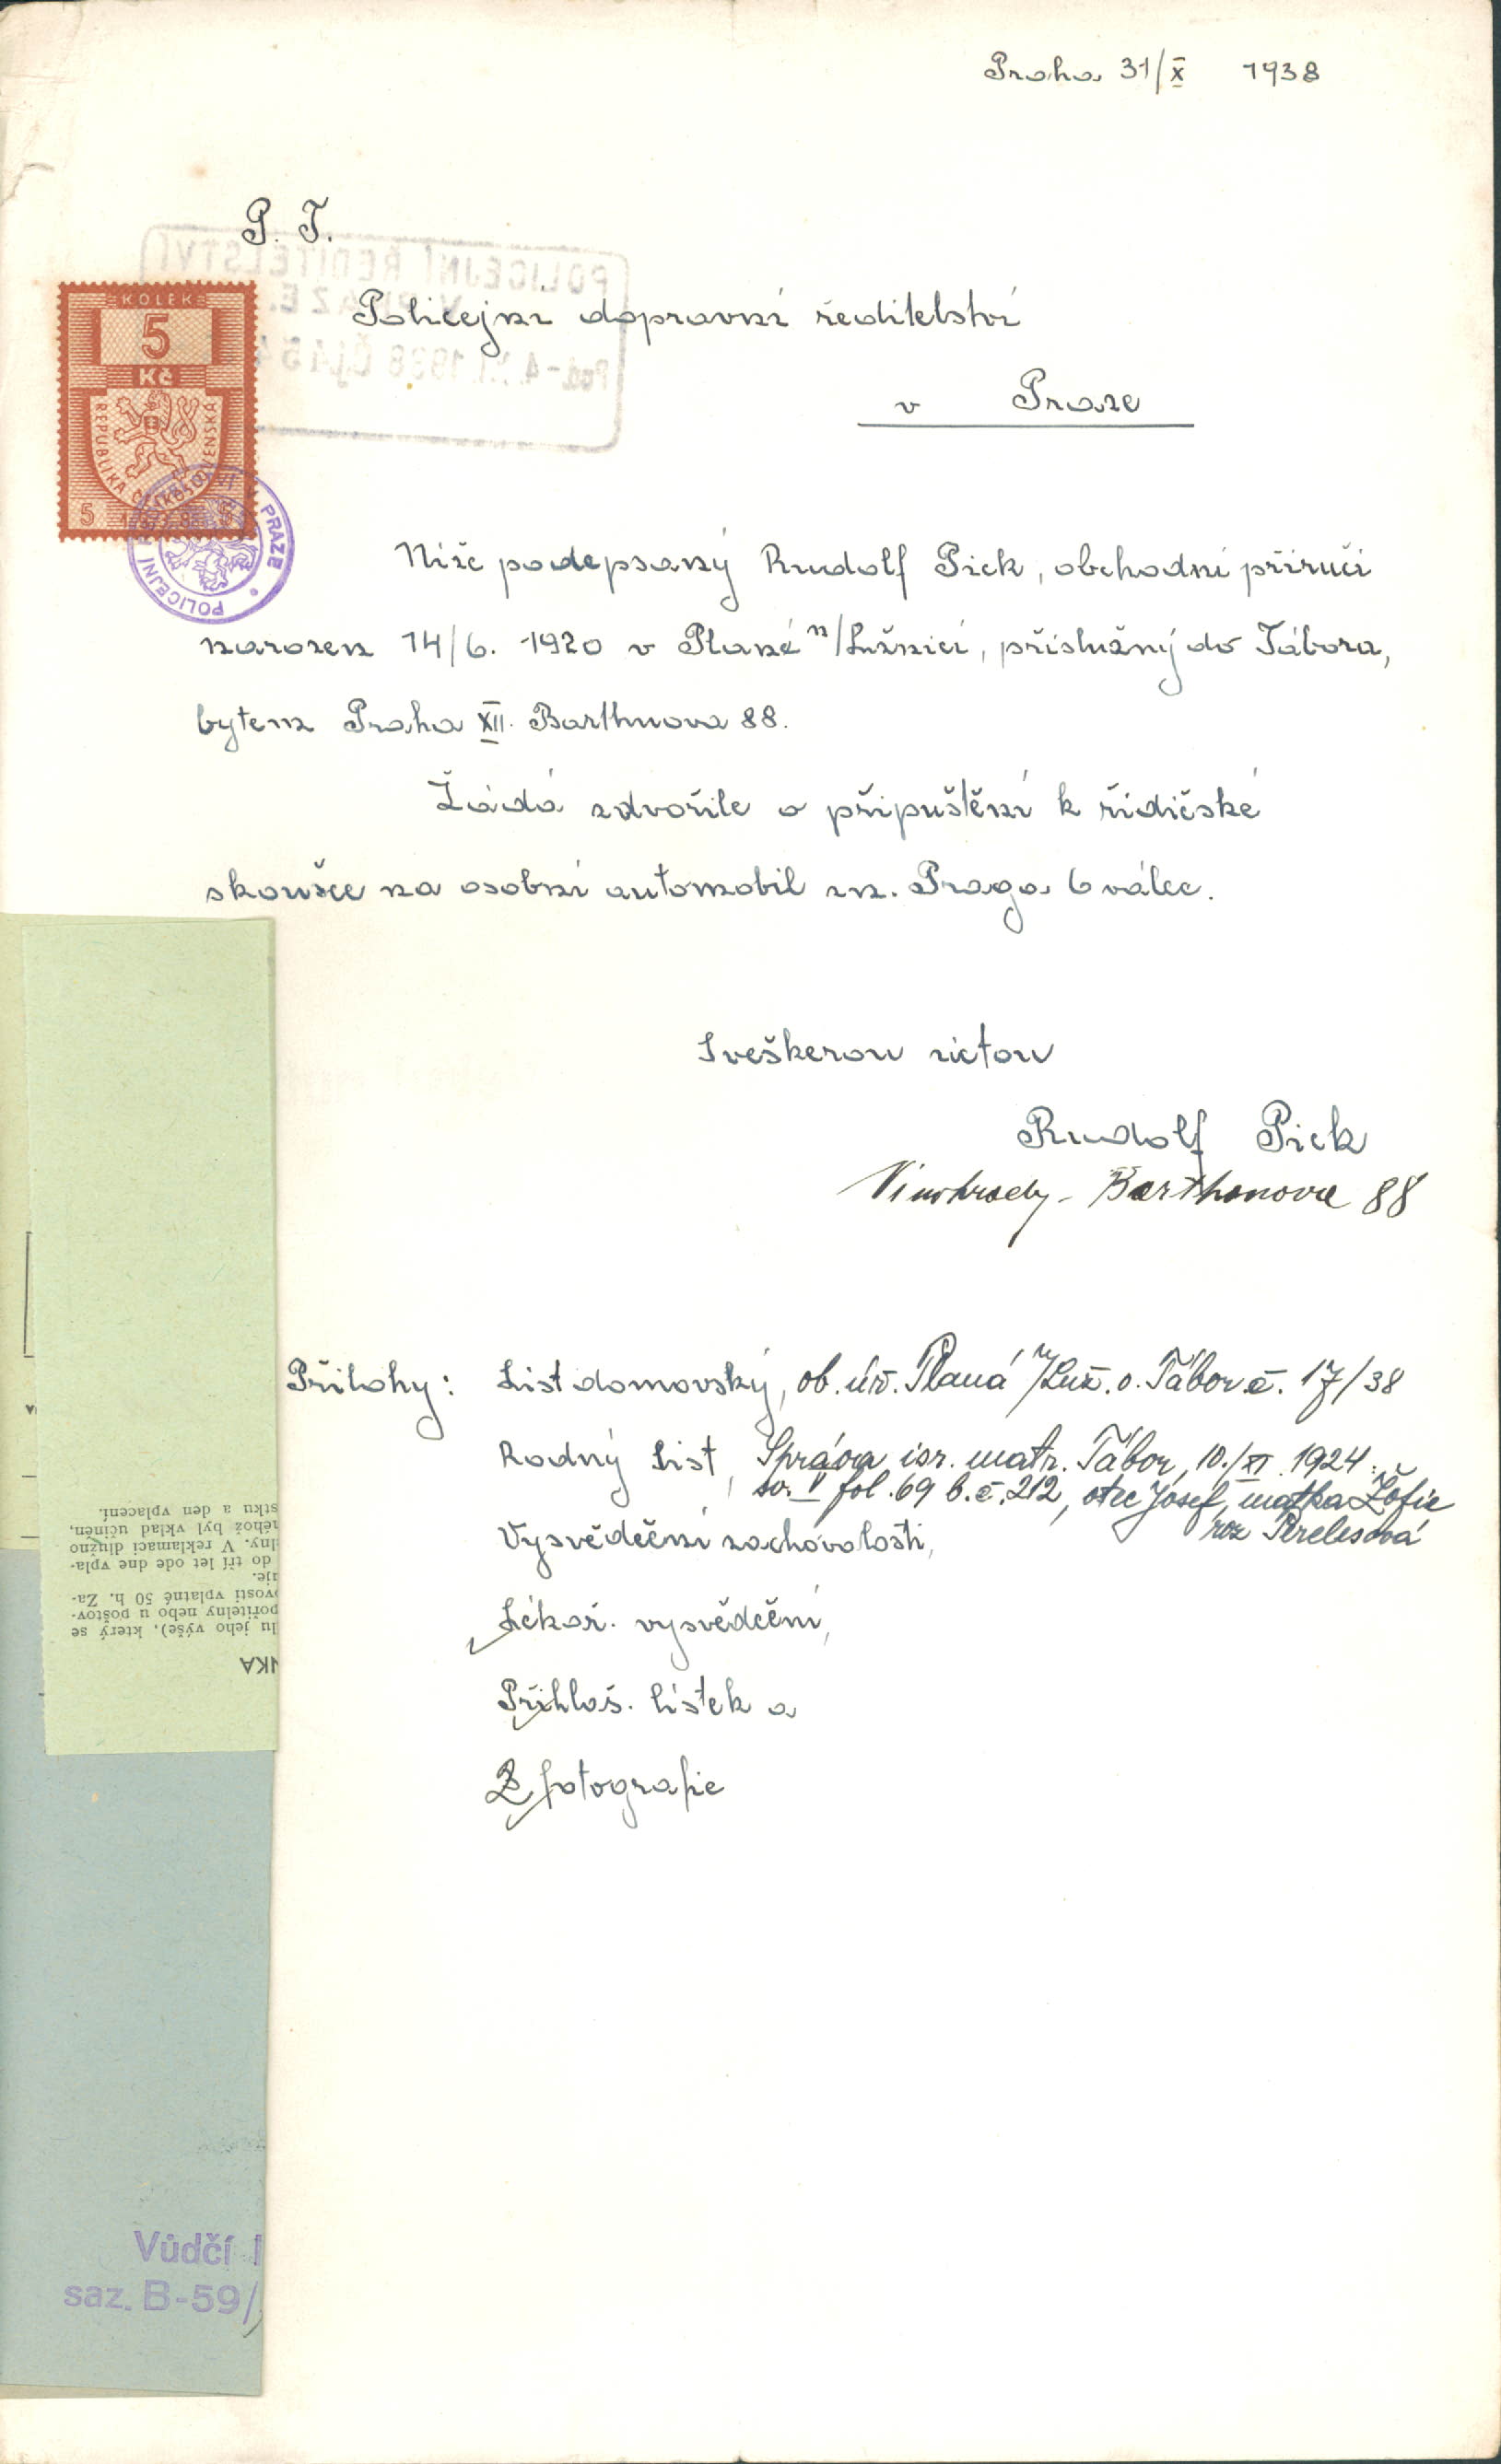 Praha 31/X 1938
P. T.
POLICEJNÍ ŘEDITELSTVÍ
V PRAZE.
KOLEK
5
Kč
REPUBLIKA ČESKOSLOVENSKÁ
5
Policejní dopravní ředitelství
v Praze
POLICEJNÍ ŘEDITELSTVÍ V PRAZE
Níže podepsaný Rudolf Pick, obchodní příručí
narozen 14/6. 1920 v Plané n/Lužnicí, příslušný do Tábora,
bytem Praha XII. Barthuova 88.
Žádá zdvořile o připuštění k řidičské
skoušce na osobní automobil zn. Praga 6 válec.
S veškerou úctou
Rudolf Pick
Vinohrady - Barthonova 88
Přílohy: List domovský, ob. úř. Planá n/Luž. o. Tábor č. 17/38
Rodný list, Správa isr. matr. Tábor, 10./XI. 1924.
sv. V fol. 69 b. č. 212, otec Josef, matka Žofie
roz Perelesová
Vysvědčení zachovalosti,
Lékař. vysvědčení,
Přihlaš. lístek a
2 fotografie
NKA
lu jeho výše), který se
pořitelny nebo u poštov-
ovosti vplatné 50 h. Za-
uje.
do tří let ode dne vpla-
lny. V reklamaci dlužno
něhož byl vklad učiněn,
stku a den vplacení.
Vůdčí l
saz. B-59/